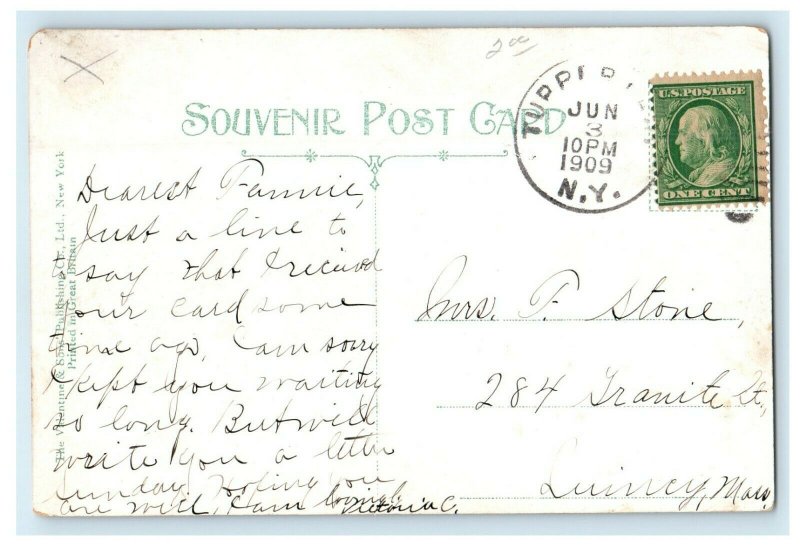 2oc
SOUVENIR POST CARD
TUPPER
JUN
3
10PM
1909
N.Y.
U.S. POSTAGE
ONE CENT
The Valentine & Sons Publishing Co., Ltd., New York
Printed in Great Britain
Dearest Fannie,
Just a line to
say that I received
your card some
time ago, I am sorry
I kept you waiting
so long. But will
write you a letter
sunday. Hoping you
are well, I am
Victoria C.
Mrs. F. Stone,
284 Granite St.,
Quincy, Mass.